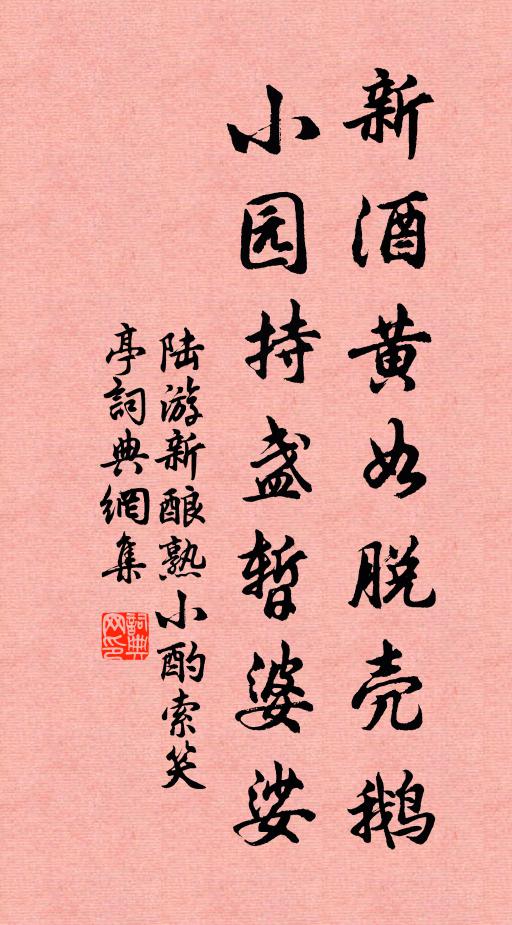 新酒黄如脱壳鹅
小园持盏暂婆娑
陆游新酿熟小酌索笑
亭詞典網集
詞典
网印